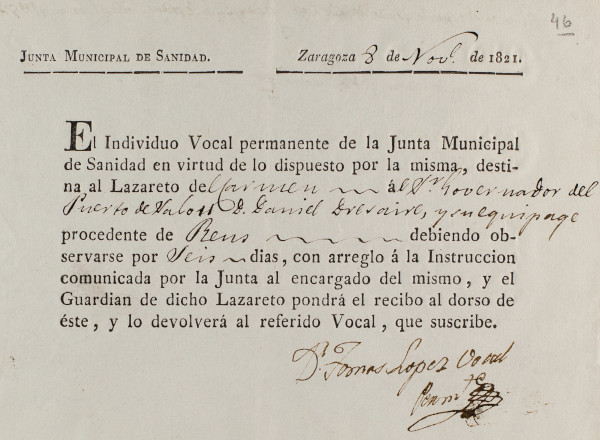 46
JUNTA MUNICIPAL DE SANIDAD. Zaragoza 8 de Nov.e de 1821.
El Individuo Vocal permanente de la Junta Municipal
de Sanidad en virtud de lo dispuesto por la misma, desti-
na al Lazareto del Carmen á el Sr. Governador del
Puerto de Salou D. Daniel Dresaire, y su equipage
procedente de Reus debiendo ob-
servarse por Seis dias, con arreglo á la Instruccion
comunicada por la Junta al encargado del mismo, y el
Guardian de dicho Lazareto pondrá el recibo al dorso de
éste, y lo devolverá al referido Vocal, que suscribe.
Dr. Tomas Lopez Vocal
Permte